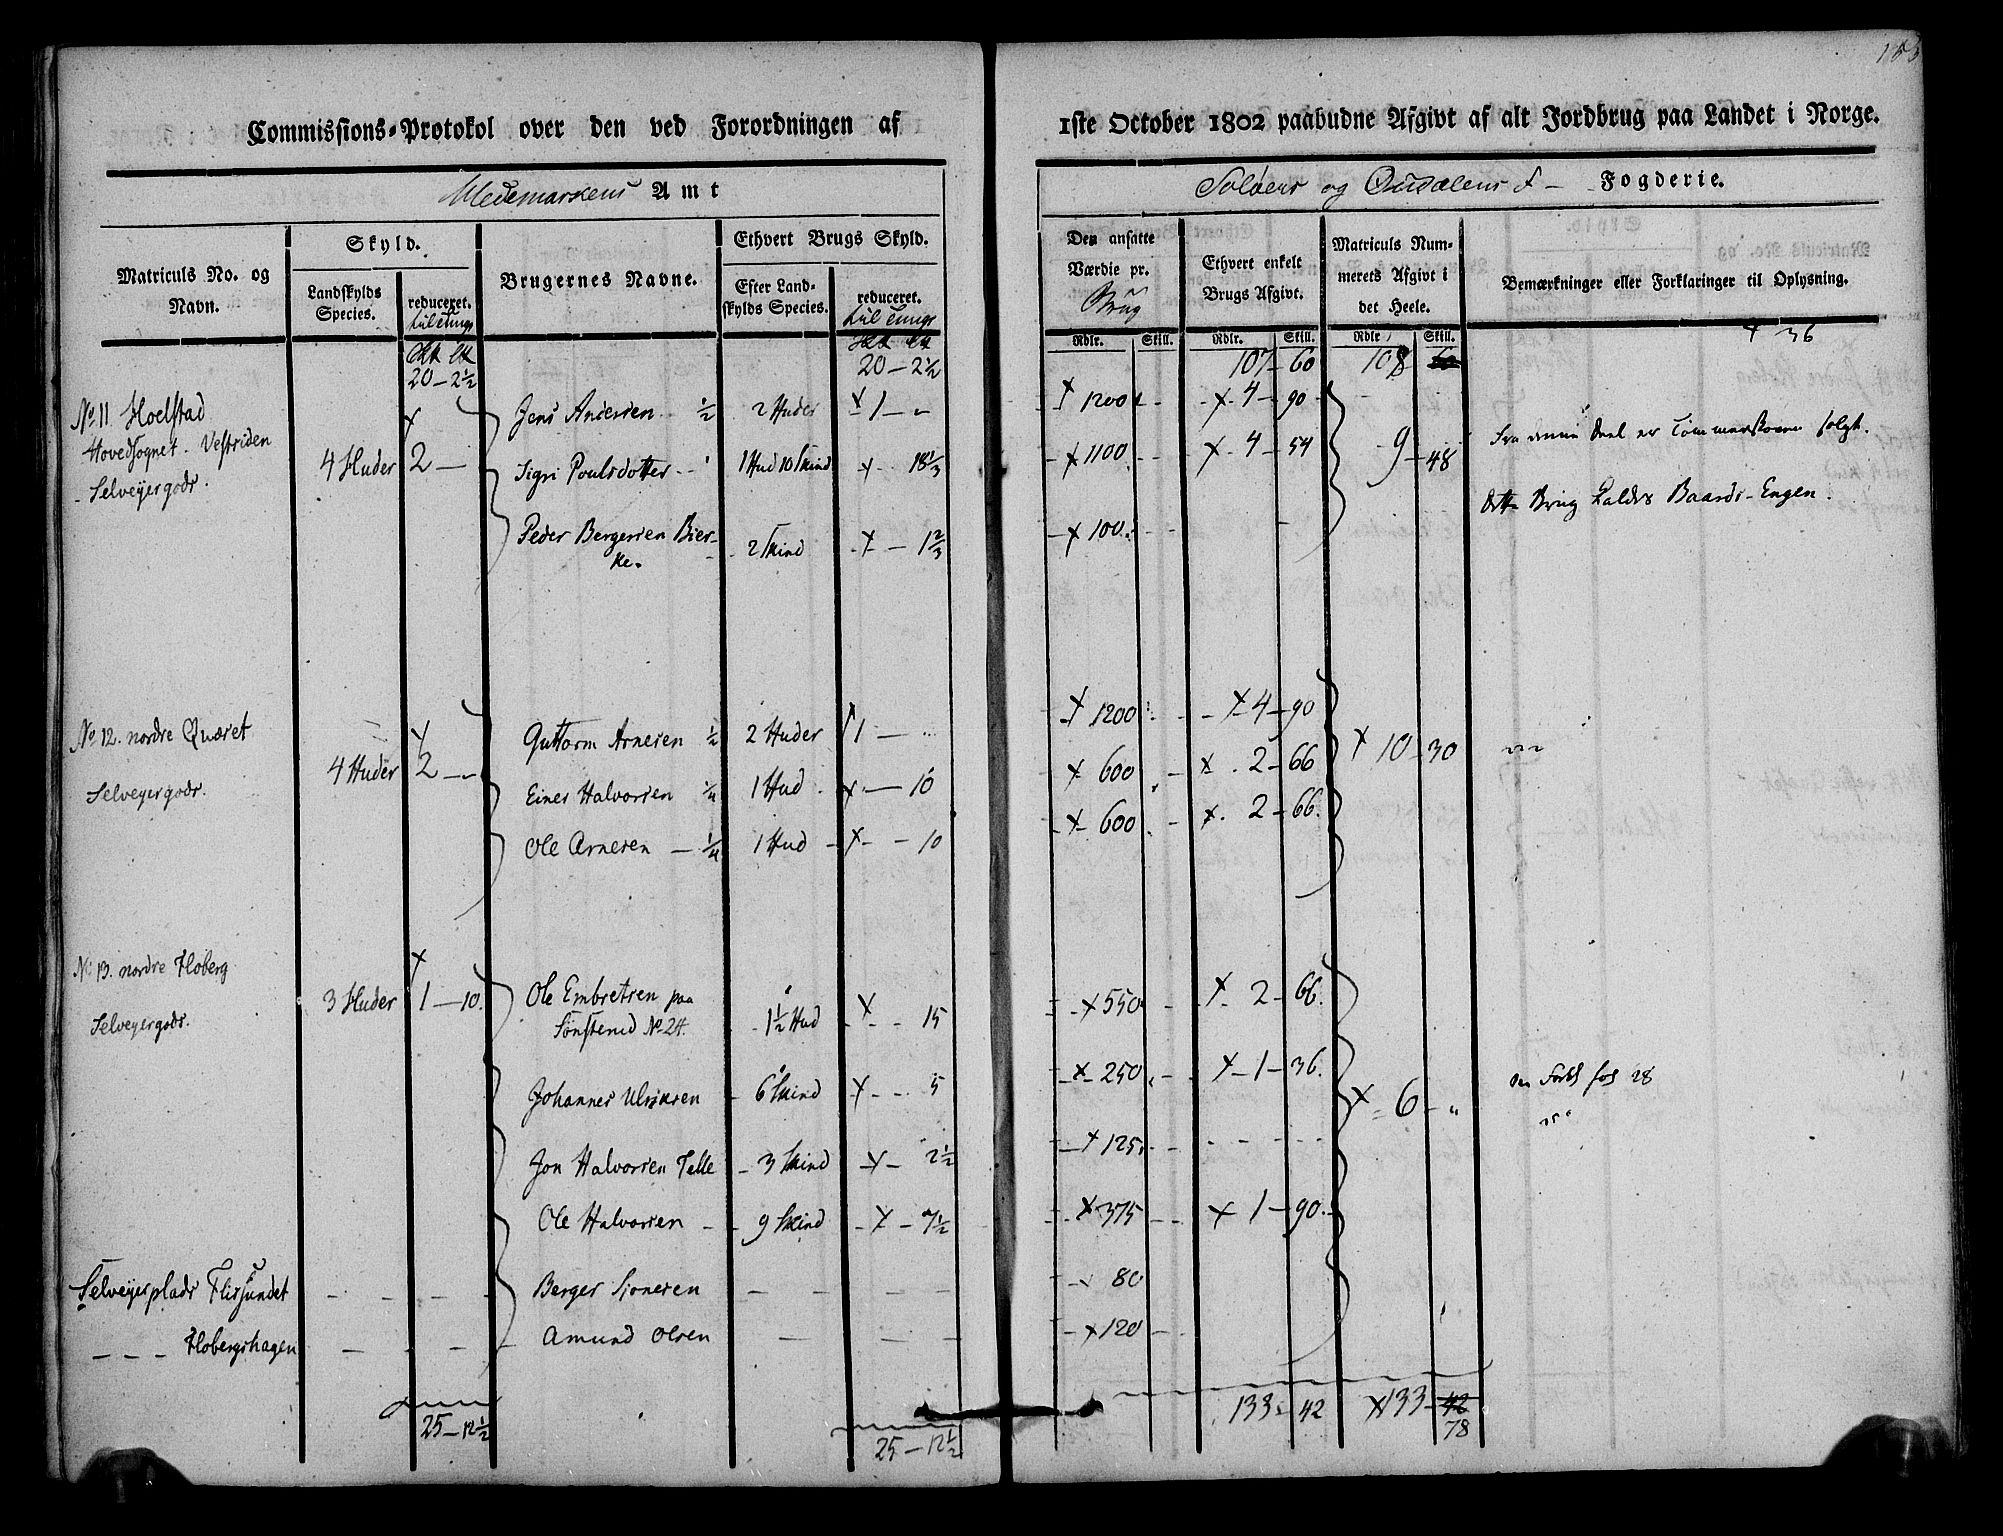 Commissions-Protokol over den ved Forordningen af
1ste October 1802 paabudne Afgivt af alt Jordbrug paa Landet i Norge.
Hedemarkens Amt
Soloers og Oudalens F — Fogderie.
Matriculs No. og Navn.
Skyld.
Landskylds Species.
reduceret.
Brugernes Navne.
Ethvert Brugs Skyld.
Efter Landskylds Species.
reduceret.
Den ansatte Værdie pr. Brug
Ethvert enkelt Brugs Afgivt.
Matriculs Nummerets Afgivt i det Heele.
Bemærkninger eller Forklaringer til Oplysning.
Rdlr. Skill. Rdlr. Skill. Rdlr. Skill.
20 — 2½ 20 — 2½ 107 — 60 108 + 36
No 11 Hoelstad
Hovedsognet. Vestsiden
Selveyergods.
4 Huder 2 —
Jens Andersen ½ 2 Huder 1 — 1200 4 — 90
Fra denne Deel er Tømmerskoven solgt.
Sigri Poulsdotter 1 Hud 10 Skind 18⅓ 1100 4 — 54 9 — 48
Dette Brug kaldes Baards-Engen.
Peder Bergersen Bier-
ke. 2 Skind 1⅔ 100
No 12. nordre Qværet
Selveyergods.
4 Huder 2 —
Guttorm Arnesen ½ 2 Huder 1 — 1200 4 — 90
Einer Halvorsen ¼ 1 Hud 10 600 2 — 66 10 — 30
Ole Arnesen — ¼ 1 Hud 10 600 2 — 66
No 13. nordre Hoberg
Selveyergods.
3 Huder 1 — 10.
Ole Embretsen paa
Sønsterud No 24. 1½ Hud 15 550 2 — 66.
Johannes Ulricsen 6 Skind 5 250 1 — 36. 6 — "
Jon Halvorsen Telle 3 Skind 2½ 125
Ole Halvorsen 9 Skind 7½ 375 1 — 90.
Selveyerplads Flisundet Berger Simensen 80
— — — Hobergshagen Amund Olsen 120
25 — 12½ 25 — 12½ 133 — 42 133 — 42
78